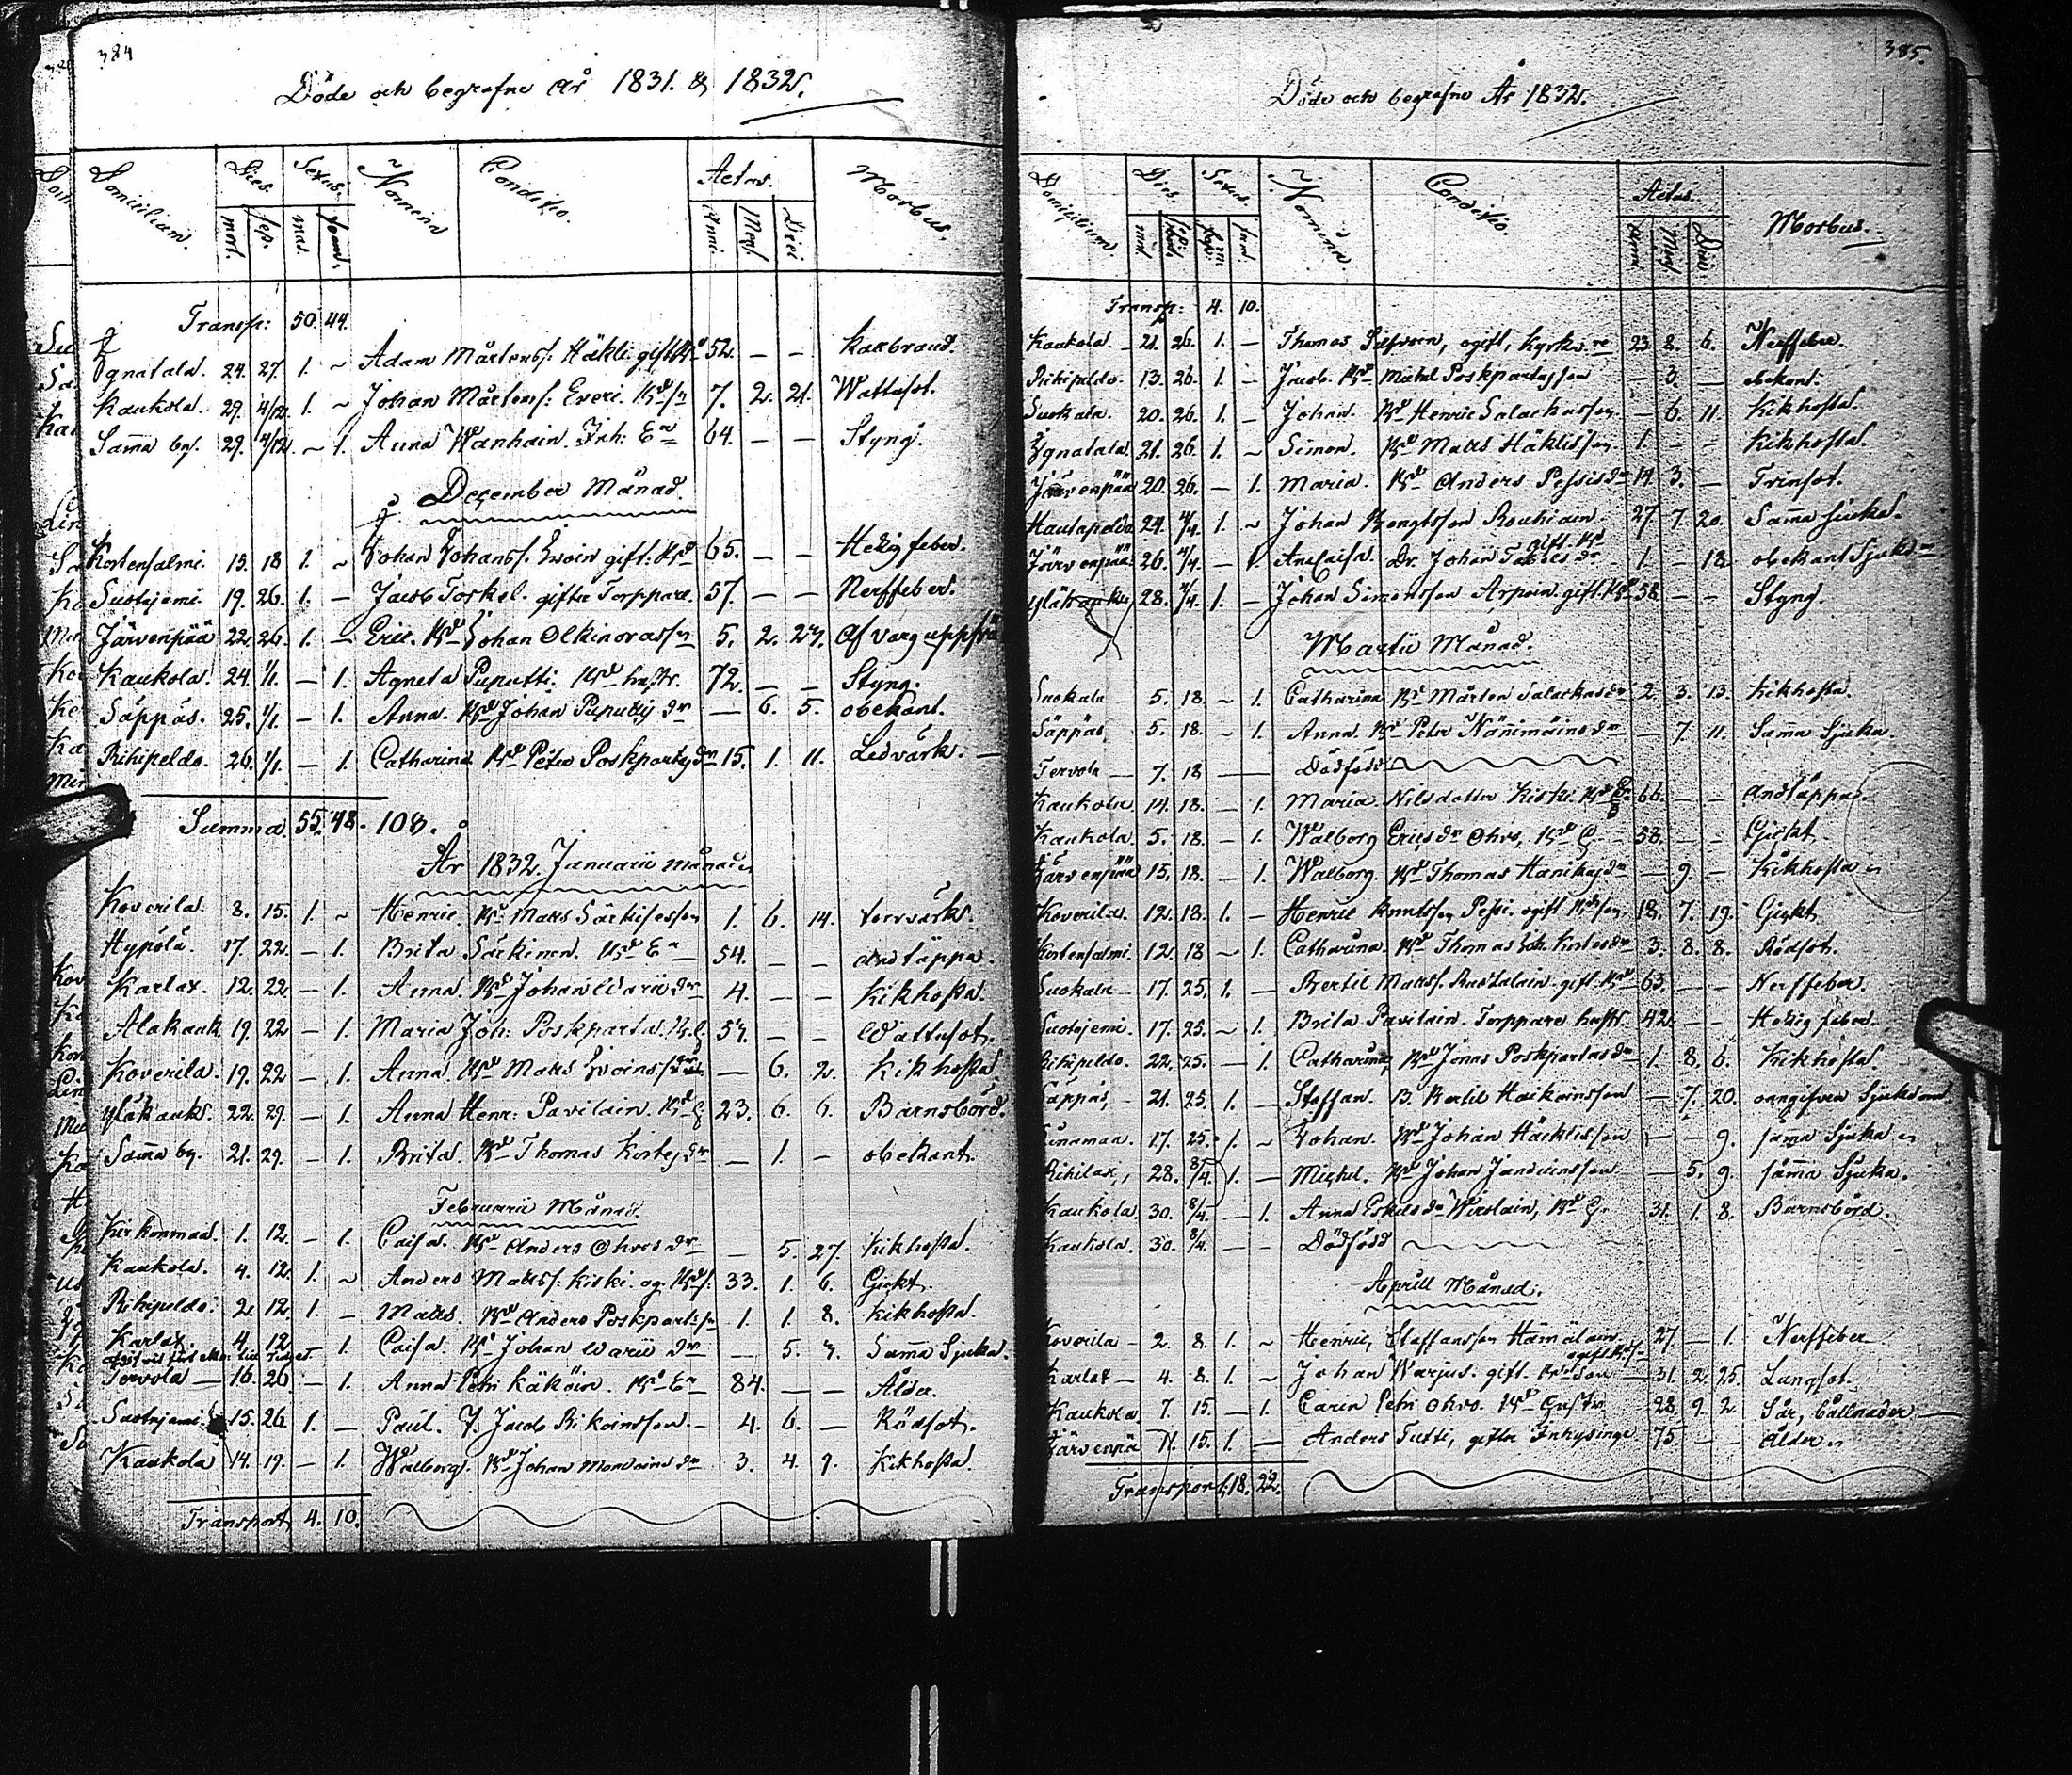 384
Döde och begrafne År 1831. & 1832.
Domicilium. Dies. Sexus. Nomen Conditio. Aetas. Morbus.
mort. sep. mas. foem. Anni. Mens. Dies
Transp: 50. 44.
Ignatala. 24. 27. 1. ~ Adam Mårtenss: Häkli gift 52. — — kallbrand.
Kaukola. 29. 4/12. 1. ~ Johan Mårtens: Everi. 7. 2. 21. Wattusot.
Sam̄a by. 29. 4/12. ~ 1. Anna Wanhain. Inh: En 64. — — Styng.
December Månad.
Kortensalmi. 15. 18 1. ~ Johan Johanss. Iwoin gift: Bd 65. — — Hetzig feber.
Suotnjemi. 19. 26. 1. — Jacob Torkel. gifter Torppare. 57. — — Nerffeber.
Järvenpää 22. 26. 1. — Eric. Bd Johan Olkinorassn 5. 2. 27. Af varg
Kaukola. 24. 1/1. — 1. Agneta Puputti. Bd hustr. 72. — — Styng.
Säppäs. 25. 1/1. — 1. Anna. Bd Johan Puputtij dr — 6. 5. obekant.
Rihipeldo. 26. 1/1. — 1. Catharina Bd Peter Poskpartij dr 15. 1. 11. Ledvärk. —
Summa. 55. 48. 103.
År 1832. Januarii månad.
Koverila. 8. 15. 1. ~ Henric. Bd Matts Särkisesson 1. 6. 14. torrvärk.
Hypölä. 17. 22. — 1. Brita Säckinen. Bd En 54. — — andtäppa.
Karlax. 12. 22. — 1. Anna. Bd Johan Warii dr 4. — — Kikhosta.
Alakauk 19. 22 — 1. Maria Joh: Poskparta. 57. — — Wattusot.
Koverila. 19. 22 — 1. Anna Bd Matts Iwoins — 6. 2. Kikhosta.
Yläkauk. 22. 29. — 1. Anna Henr: Pavilain. 23. 6. 6. Barnsbörd.
Sam̄a by. 21. 29. — 1. Brita. Bd Thomas Kortej dr — 1. — obekant.
Februarii Månad.
Kirkonmaa. 1. 12. — 1. Caisa. Bd Anders Ohvos dr — 5. 27. Kikhosta.
Kaukola. 4. 12. 1. ~ Anders Matts: Kiski. og. 33. 1. 6. Gickt.
Rihipeldo. 2. 12. 1. — Matts. Bd Anders Poskpartsn 1. 1. 8. Kikhosta.
Karlax 4. 12. — 1. Caisa. Bd Johan Warii dr — 5. 7. Sam̄a Sjuka.
Tervola — 16. 26 — 1. Anna Petri Käköin. Bd En 84. — — Ålder.
Suotnjemi. 15. 26. 1. — Paul. T. Jacob Rikoinsson. — 4. 6. — Rödsot.
Kaukola 14. 19. — 1. Walborg. Bd Johan Monoins dr 3. 4. 9. Kikhosta.
Transport 4. 10.
385.
Döde och begrafne År 1832.
Domicilium. Dies. Sexus Nomina. Conditio. Aetas. Morbus.
Transp: 4. 10.
Kaukola — 21. 26. 1. — Thomas ogift, 23. 8. 6. Nerffeber.
Rihipeldo. 13. 26. 1. — Jacob. Bd Michel Poskpartasson — 3. — obekant:
Suokala. 20. 26. 1. — Johan. Bd Henric Salackasson — 6. 11. Kikhosta.
Ignatala. 21. 26. 1. ~ Simon. Bd Matts Häklisson 1. — — Kikhosta.
Järvenpää 20. 26. — 1. Maria. Bd Anders Pessis dr 14. 3. — Trinsot.
Hautapeldo 24. 4/4. 1. ~ Johan Bengtsson Rouhiain. gift. Bd 27. 7. 20. Sam̄a sjuka.
Järvenpää 26. 4/4. — 1. AnaCaisa. Dr. Johan dr 1. — 18 obekant Sjukd
Yläkauku 28. 4/4. 1. — Johan Simonsson Arpoin. gift. Bd 58 — — Styng.
Martii Månad.
Suokala 5. 18. ~ 1. Catharina. Bd Mårten Salackas dr 2. 3. 13. Kikhosta.
Säppäs. 5. 18. ~ 1. Anna. Bd Peter Nänimäins dr — 7. 11. Sam̄a Sjuka.
Tervola — 7. 18 — Dödfödd
Kaukola 14. 18. — 1. Maria Nilsdotter Kiski 66. — — Andtäppa.
Kaukola. 5. 18. — 1. Walborg Erics dr Ohvo, 58. — — Gickt.
Järvenpää 15. 18. — 1. Walborg. Bd Thomas Hanikaj dr — 9. — Kikhosta
Koverila. 12. 18. 1. — Henric Knutsson Pessi. ogift 18. 7. 19. Gickt.
Kortensalmi. 12. 18 ~ 1. Catharina. Bd Thomas Joh. Kortes dr 3. 8. 8. Rödsot.
Suokala — 17. 25. 1. — Bertil Matts. gift. Bd 63. — — Nerffeber.
Suotnjemi. 17. 25. ~ 1. Brita Pavilain. Torppare hustr. 42. — — Hetzig feber.
Rihipeldo. 22. 25. — 1. Catharina, Bd Jonas Poskpartas dr 1. 8. 6. Kikhosta.
Säppäs, — 21. 25. 1. — Staffan. B. Bertil Haikoinsson — 7. 20. oangifven Sjukdom
17. 25. 1. ~ Johan. Bd Johan Häcklisson — — 9. sam̄a Sjuka
Rihilax, 28. 8/4. 1. — Michel. Bd Johan Janduinsson — 5. 9. sam̄a Sjuka.
Kaukola. 30. 8/4. — 1. Anna Eskils dr Wirolain, 31. 1. 8. Barnsbörd.
Kaukola. 30. 8/4. — — Dödfödd
Aprill Månad.
Koverila — 2. 8. 1. ~ Henric, Staffansson Hämäläin. 27. — 1. Nerffeber
Karlax — 4. 8. 1. ~ Johan Warjus. gift. Bd Son 31. 2. 25. Lungsot.
Kaukola 7. 15. — 1. Carin Petri Ohvo. Bd hustr. 28. 9. 2. Sår, bållnader
Järvenpä 11. 15. 1. — Anders Tutti, gifter Inhysing 75. — — Ålder
Transport. 18. 22.